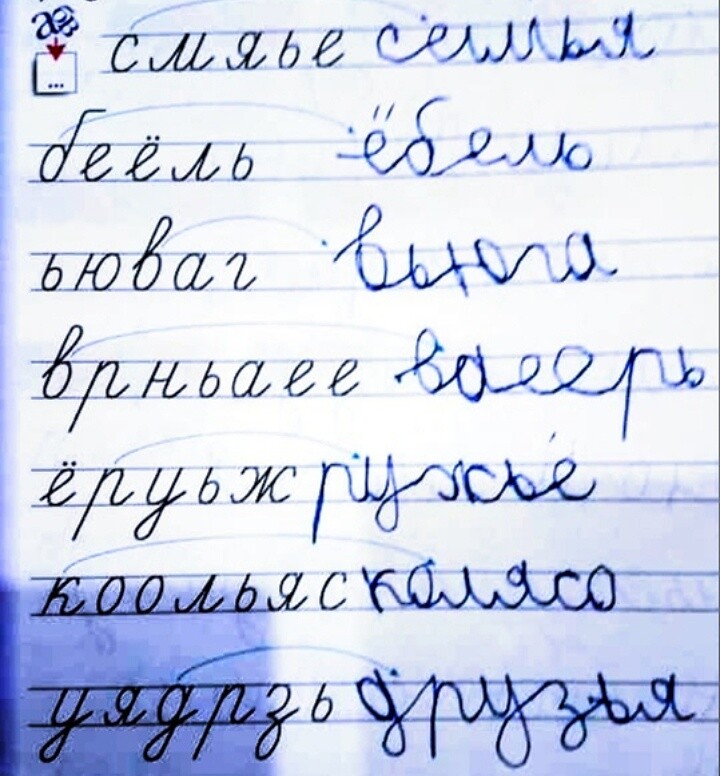 смяье семья
беёль ёбель
ьюваг вьюга
врньаее ваеерь
ёруьж ружьё
коольяс колясо
уядрзь друзья